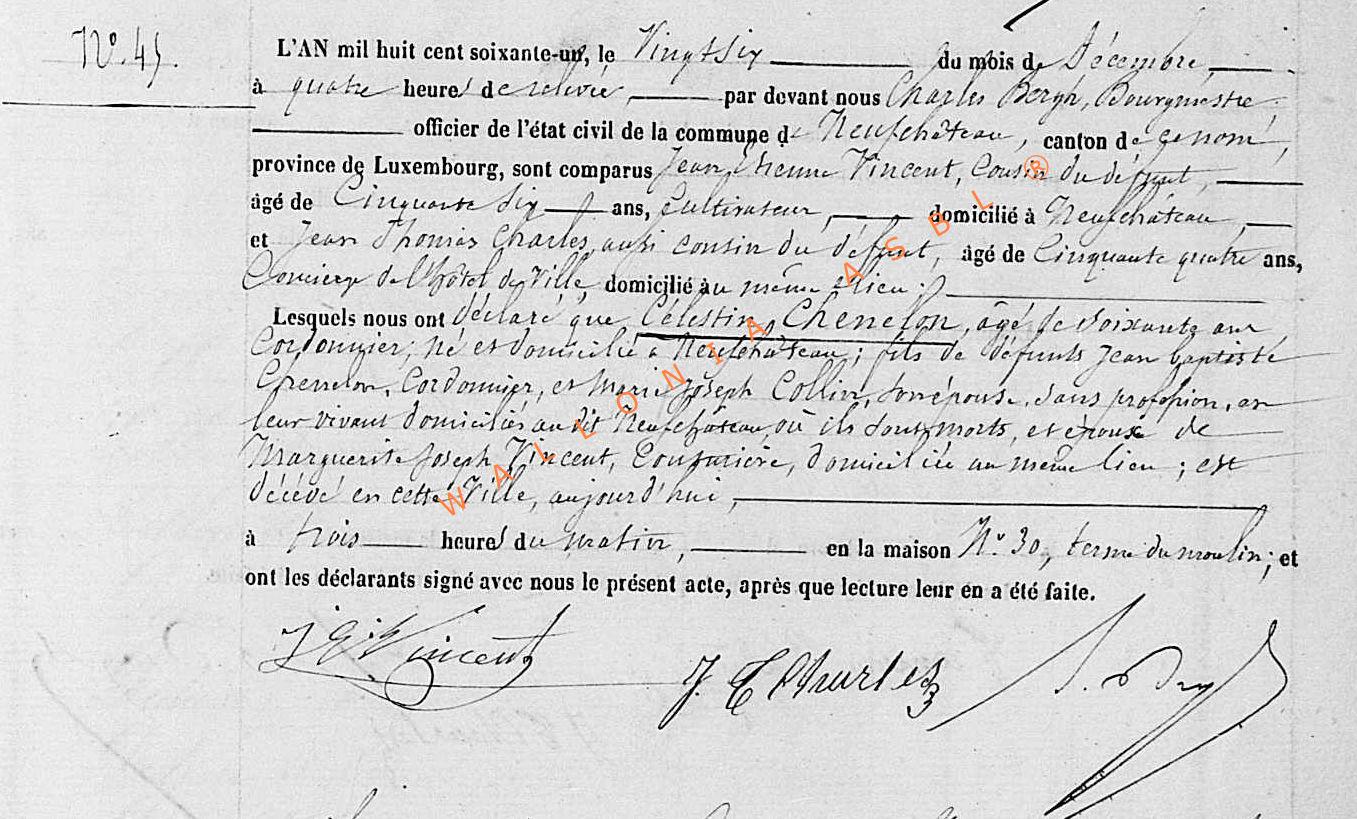 N° 45.
L'AN mil huit cent soixante-un, le Vingt Six du mois de Décembre,
à quatre heures de relevée, par devant nous Charles Bergh, Bourgmestre
officier de l'état civil de la commune de Neufchâteau, canton de ce nom,
province de Luxembourg, sont comparus Jean Etienne Vincent, Cousin du défunt,
âgé de Cinquante Six ans, Cultivateur, domicilié à Neufchâteau,
et Jean Thomas Charles, aussi cousin du défunt, âgé de Cinquante quatre ans,
Concierge de l'hôtel de Ville, domicilié au même lieu;
Lesquels nous ont déclaré que Célestin Chenelon, âgé de soixante ans
Cordonnier, né et domicilié à Neufchâteau; fils de défunts Jean baptiste
Chenelon, Cordonnier, et Marie Joseph Collin, son épouse, sans profession, en
leur vivant domiciliés au dit Neufchâteau, où ils sont morts, et époux de
Marguerite Joseph Vincent, Couturière, domiciliée au même lieu; est
décédé en cette Ville, aujourd'hui,
à trois heures du matin, en la maison N° 30, terme du moulin; et
ont les déclarants signé avec nous le présent acte, après que lecture leur en a été faite.
J E Vincent
J. T Charles
WALLONIA ASBL ®